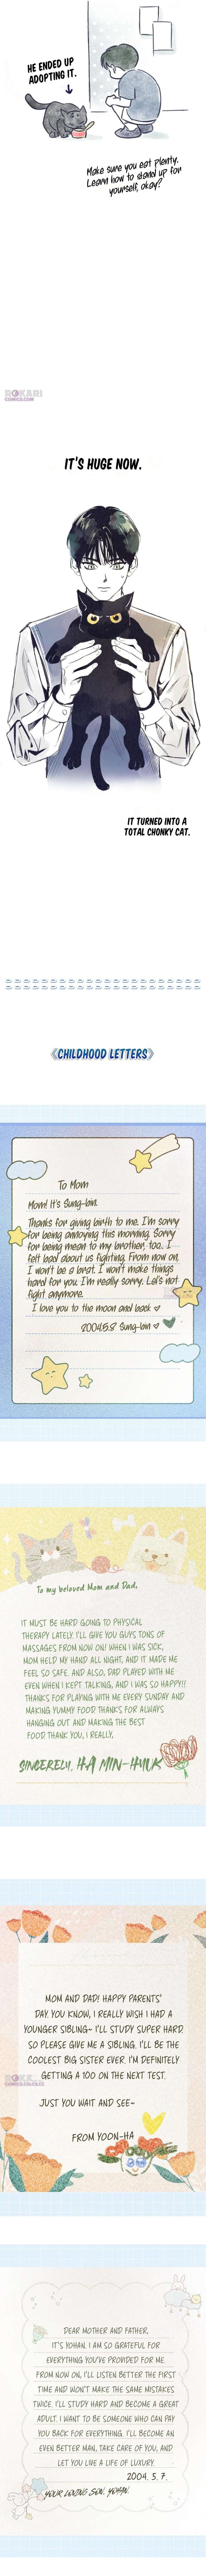 HE ENDED UP
ADOPTING IT.
Make sure you eat plenty.
Learn how to stand up for
yourself, okay?
ROKARI
COMICS.COM
IT'S HUGE NOW.
IT TURNED INTO A
TOTAL CHONKY CAT.
《CHILDHOOD LETTERS》
To Mom
Mom! It's Sung-bin.
Thanks for giving birth to me. I'm sorry
for being annoying this morning. Sorry
for being mean to my brother, too. I
felt bad about us fighting. From now on,
I won't be a brat. I won't make things
hard for you. I'm really sorry. Let's not
fight anymore.
I love you to the moon and back ♡
2004.5.8 Sung-bin ♡
To my beloved Mom and Dad,
IT MUST BE HARD GOING TO PHYSICAL
THERAPY LATELY. I'LL GIVE YOU GUYS TONS OF
MASSAGES FROM NOW ON! WHEN I WAS SICK,
MOM HELD MY HAND ALL NIGHT, AND IT MADE ME
FEEL SO SAFE. AND ALSO, DAD PLAYED WITH ME
EVEN WHEN I KEPT TALKING, AND I WAS SO HAPPY!!
THANKS FOR PLAYING WITH ME EVERY SUNDAY AND
MAKING YUMMY FOOD THANKS FOR ALWAYS
HANGING OUT AND MAKING THE BEST
FOOD THANK YOU, I REALLY,
SINCERELY, HA MIN-HYUK
MOM AND DAD! HAPPY PARENTS'
DAY. YOU KNOW, I REALLY WISH I HAD A
YOUNGER SIBLING~ I'LL STUDY SUPER HARD.
SO PLEASE GIVE ME A SIBLING. I'LL BE THE
COOLEST BIG SISTER EVER. I'M DEFINITELY
GETTING A 100 ON THE NEXT TEST.
JUST YOU WAIT AND SEE~
FROM YOON-HA
DEAR MOTHER AND FATHER,
IT'S YOHAN. I AM SO GRATEFUL FOR
EVERYTHING YOU'VE PROVIDED FOR ME.
FROM NOW ON, I'LL LISTEN BETTER THE FIRST
TIME AND WON'T MAKE THE SAME MISTAKES
TWICE. I'LL STUDY HARD AND BECOME A GREAT
ADULT. I WANT TO BE SOMEONE WHO CAN PAY
YOU BACK FOR EVERYTHING. I'LL BECOME AN
EVEN BETTER MAN, TAKE CARE OF YOU, AND
LET YOU LIVE A LIFE OF LUXURY.
2004. 5. 7.
YOUR LOVING SON, YOHAN.